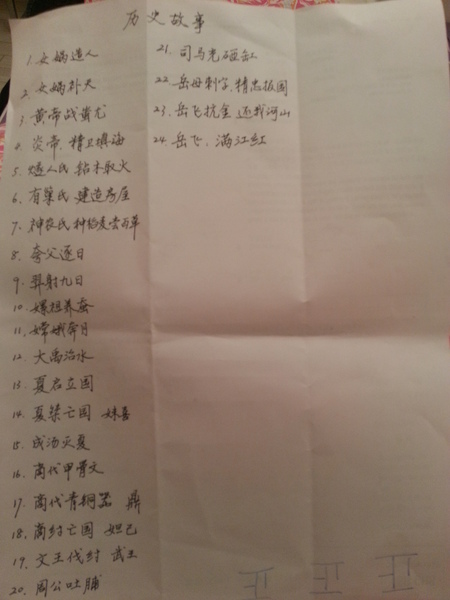 历史故事
1. 女娲造人
2. 女娲补天
3 黄帝战蚩尤
4 炎帝、精卫填海
5. 燧人氏 钻木取火
6. 有巢氏 建造房屋
7. 神农氏 种稻麦尝百草
8. 夸父逐日
9. 羿射九日
10. 嫘祖养蚕
11. 嫦娥奔月
12. 大禹治水
13. 夏启立国
14. 夏桀亡国 妹喜
15. 成汤灭夏
16. 商代甲骨文
17. 商代青铜器 鼎
18. 商纣亡国 妲己
19. 文王伐纣 武王
20. 周公吐脯
21. 司马光砸缸
22. 岳母刺字, 精忠报国
23. 岳飞抗金 还我河山
24. 岳飞, 满江红
正 正 正